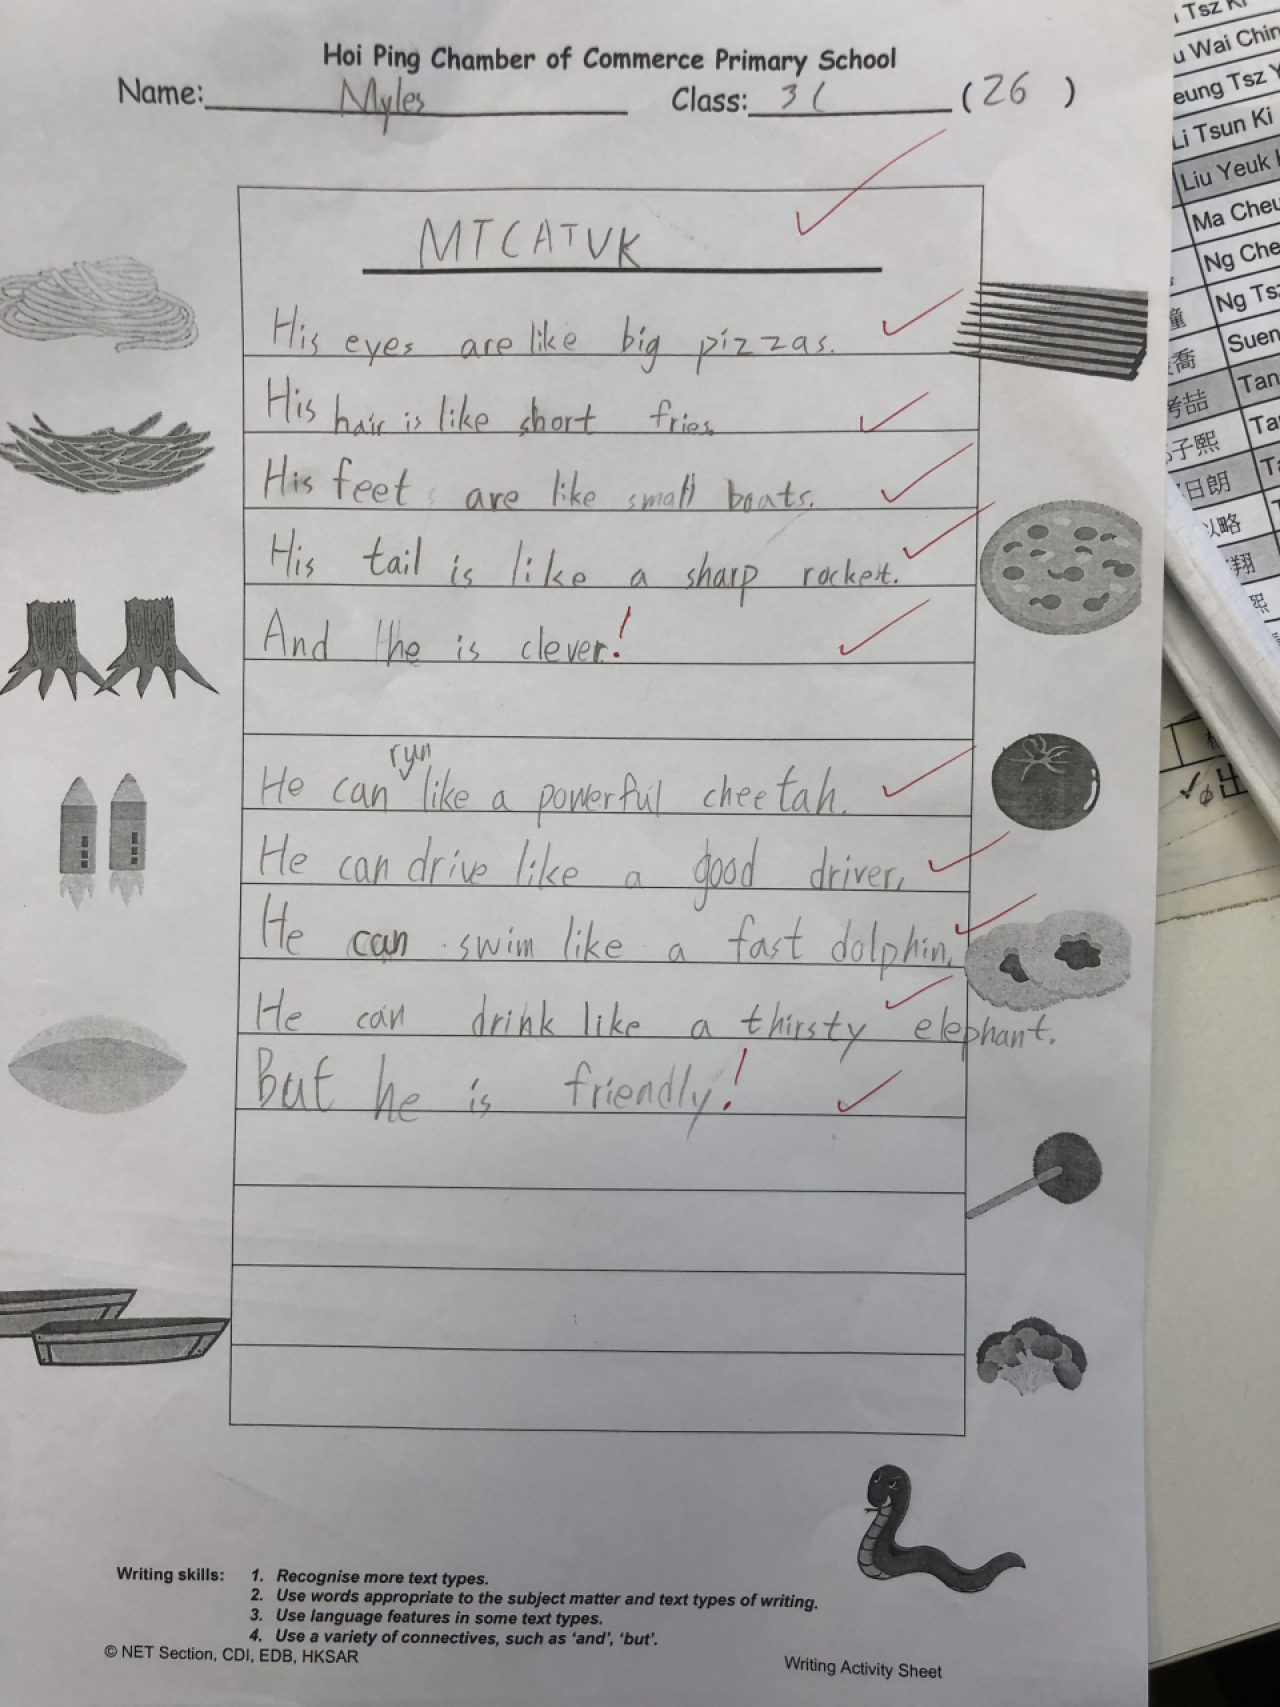 Hoi Ping Chamber of Commerce Primary School
Name: Myles Class: 3C (26)
MTCATVK
His eyes are like big pizzas.
His hair is like short fries.
His feet are like small boats.
His tail is like a sharp rocket.
And he is clever!
He can run like a powerful cheetah.
He can drive like a good driver.
He can swim like a fast dolphin.
He can drink like a thirsty elephant.
But he is friendly!
Writing skills: 1. Recognise more text types.
2. Use words appropriate to the subject matter and text types of writing.
3. Use language features in some text types.
4. Use a variety of connectives, such as 'and', 'but'.
© NET Section, CDI, EDB, HKSAR
Writing Activity Sheet
Tsz
Wai Chin
eung Tsz Y
Li Tsun Ki
Liu Yeuk
Ma Cheu
Ng Che
Ng Tsz
Suen
Tan
喬
考喆
子熙
日朗
以略
翔
熙
出